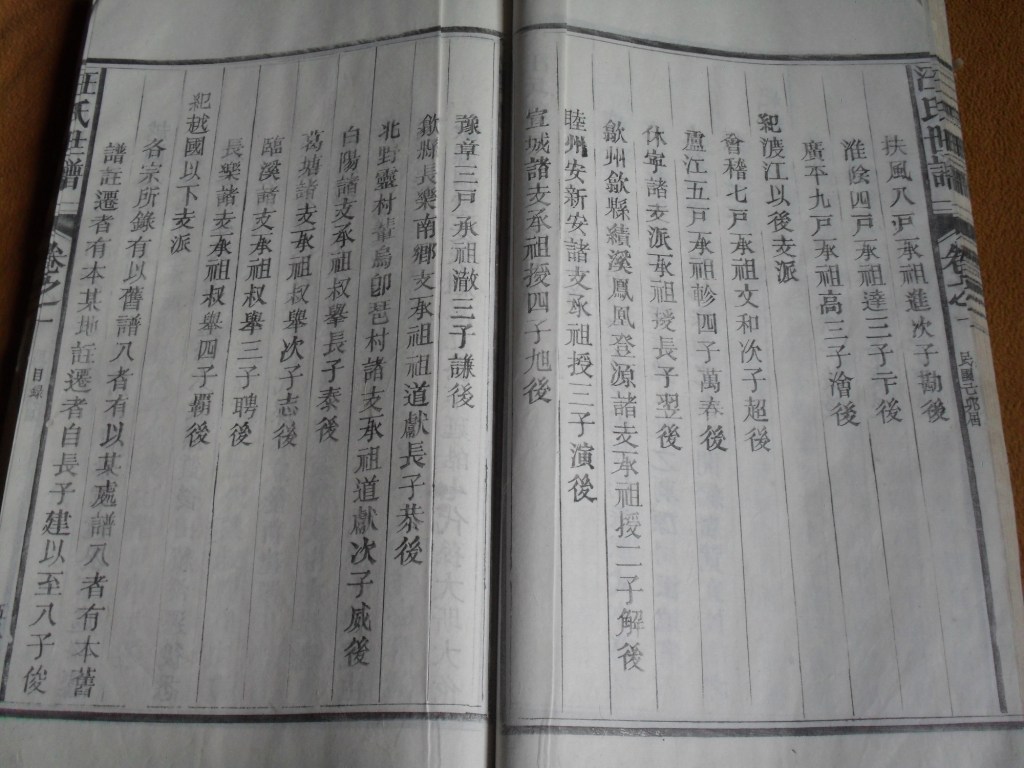 汪氏世譜
卷之一
扶風八戶承祖進次子勛後
淮陰四戶承祖達三子干後
廣平九戶承祖高三子澮後
紀渡江以後支派
會稽七戶承祖文和次子超後
廬江五戶承祖軫四子萬春後
休寧諸支派承祖授長子翌後
歙州歙縣績溪鳳凰登源諸支承祖授二子解後
睦州安新安諸支承祖授三子演後
宣城諸支承祖授四子旭後
豫章三戶承祖澈三子謙後
歙縣長樂南鄉支承祖祖道獻長子恭後
北野靈村黃島卽琶村諸支承祖道獻次子威後
白陽諸支承祖叔舉長子泰後
葛塘諸支承祖叔舉次子志後
臨溪諸支承祖叔舉三子聘後
長樂諸支承祖叔舉四子覇後
紀越國以下支派
各宗所錄有以舊譜入者有以某處譜入者有本舊
譜註遷者有本某地註遷者自長子建以至八子俊
汪氏世譜
卷之一
目錄